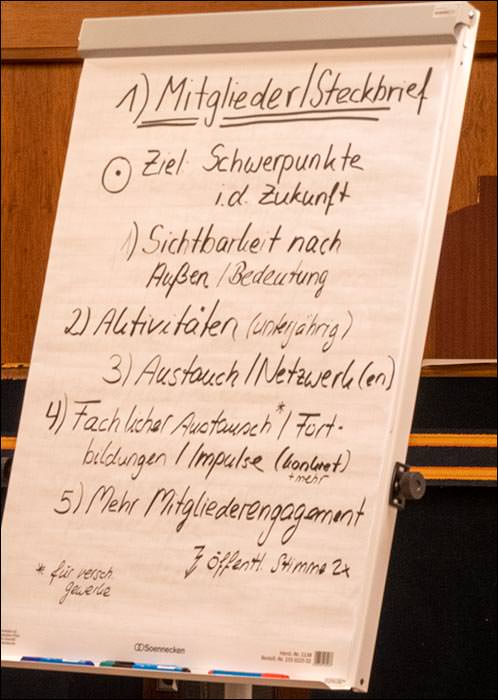 1) Mitglieder/Steckbrief
Ziel: Schwerpunkte
i.d. Zukunft
1) Sichtbarkeit nach
Außen / Bedeutung
2) Aktivitäten (unterjährig)
3) Austausch / Netzwerk(en)
4) Fachlicher Austausch* / Fort-
bildungen / Impulse (konkret)
+mehr
5) Mehr Mitgliederengagement
öffentl. Stimme 2x
* für versch.
Gewerke
Soennecken